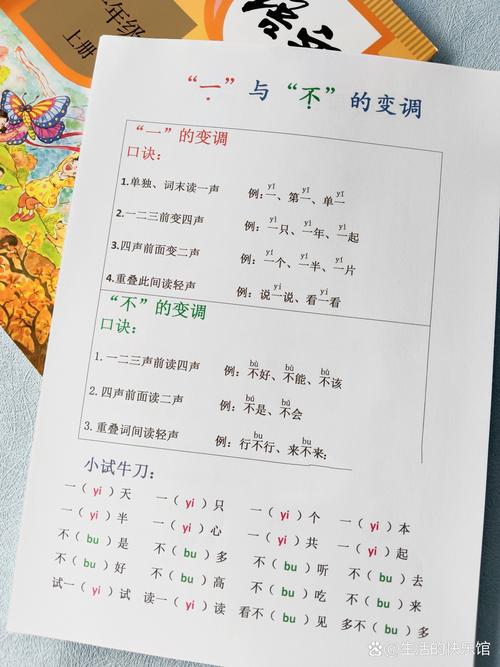 二年级
上册
“一”与“不”的变调
“一”的变调
口诀：
yī yī yī
1.单独、词末读一声 例：一、第一、单一
yì yì yì
2.一二三前变四声 例：一只、一年、一起
yí yí yí
3.四声前面变二声 例：一个、一半、一片
yi yi
4.重叠此间读轻声 例：说一说、看一看
“不”的变调
口诀：
bù bù bù
1. 一二三声前读四声 例：不好、不能、不该
bú bú
2. 四声前面读二声 例：不是、不会
bu bu
3. 重叠词间读轻声 例：行不行、来不来；
小试牛刀：
一（yi）天 一（yi）只 一（yi）个 一（yi）本
一（yi）半 一（yi）心 一（yi）共 一（yi）起
不（bu）是 不（bu）多 不（bu）听 不（bu）去
不（bu）好 不（bu）高 不（bu）吃 不（bu）来
试一（yi）试 读一（yi）读 看不（bu）见 多不（bu）多
生活的快乐馆